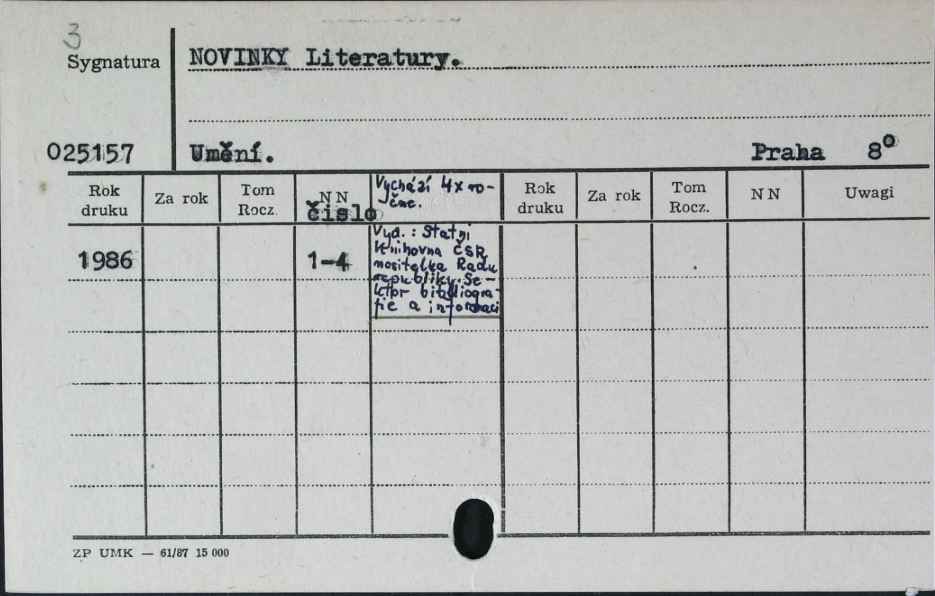 3
Sygnatura
NOVINKY Literatury.
025157
Umění.
Praha 8°
Rok druku
Za rok
Tom Rocz.
NN
číslo
Vychází 4x ro-
čne.
Rok druku
Za rok
Tom Rocz.
NN
Uwagi
1986
1-4
Vyd.: Statni
knihovna ČSR
nositelka Radu
republiky. Se-
ktor bibliogra-
fie a informaci
ZP UMK — 61/87 15 000